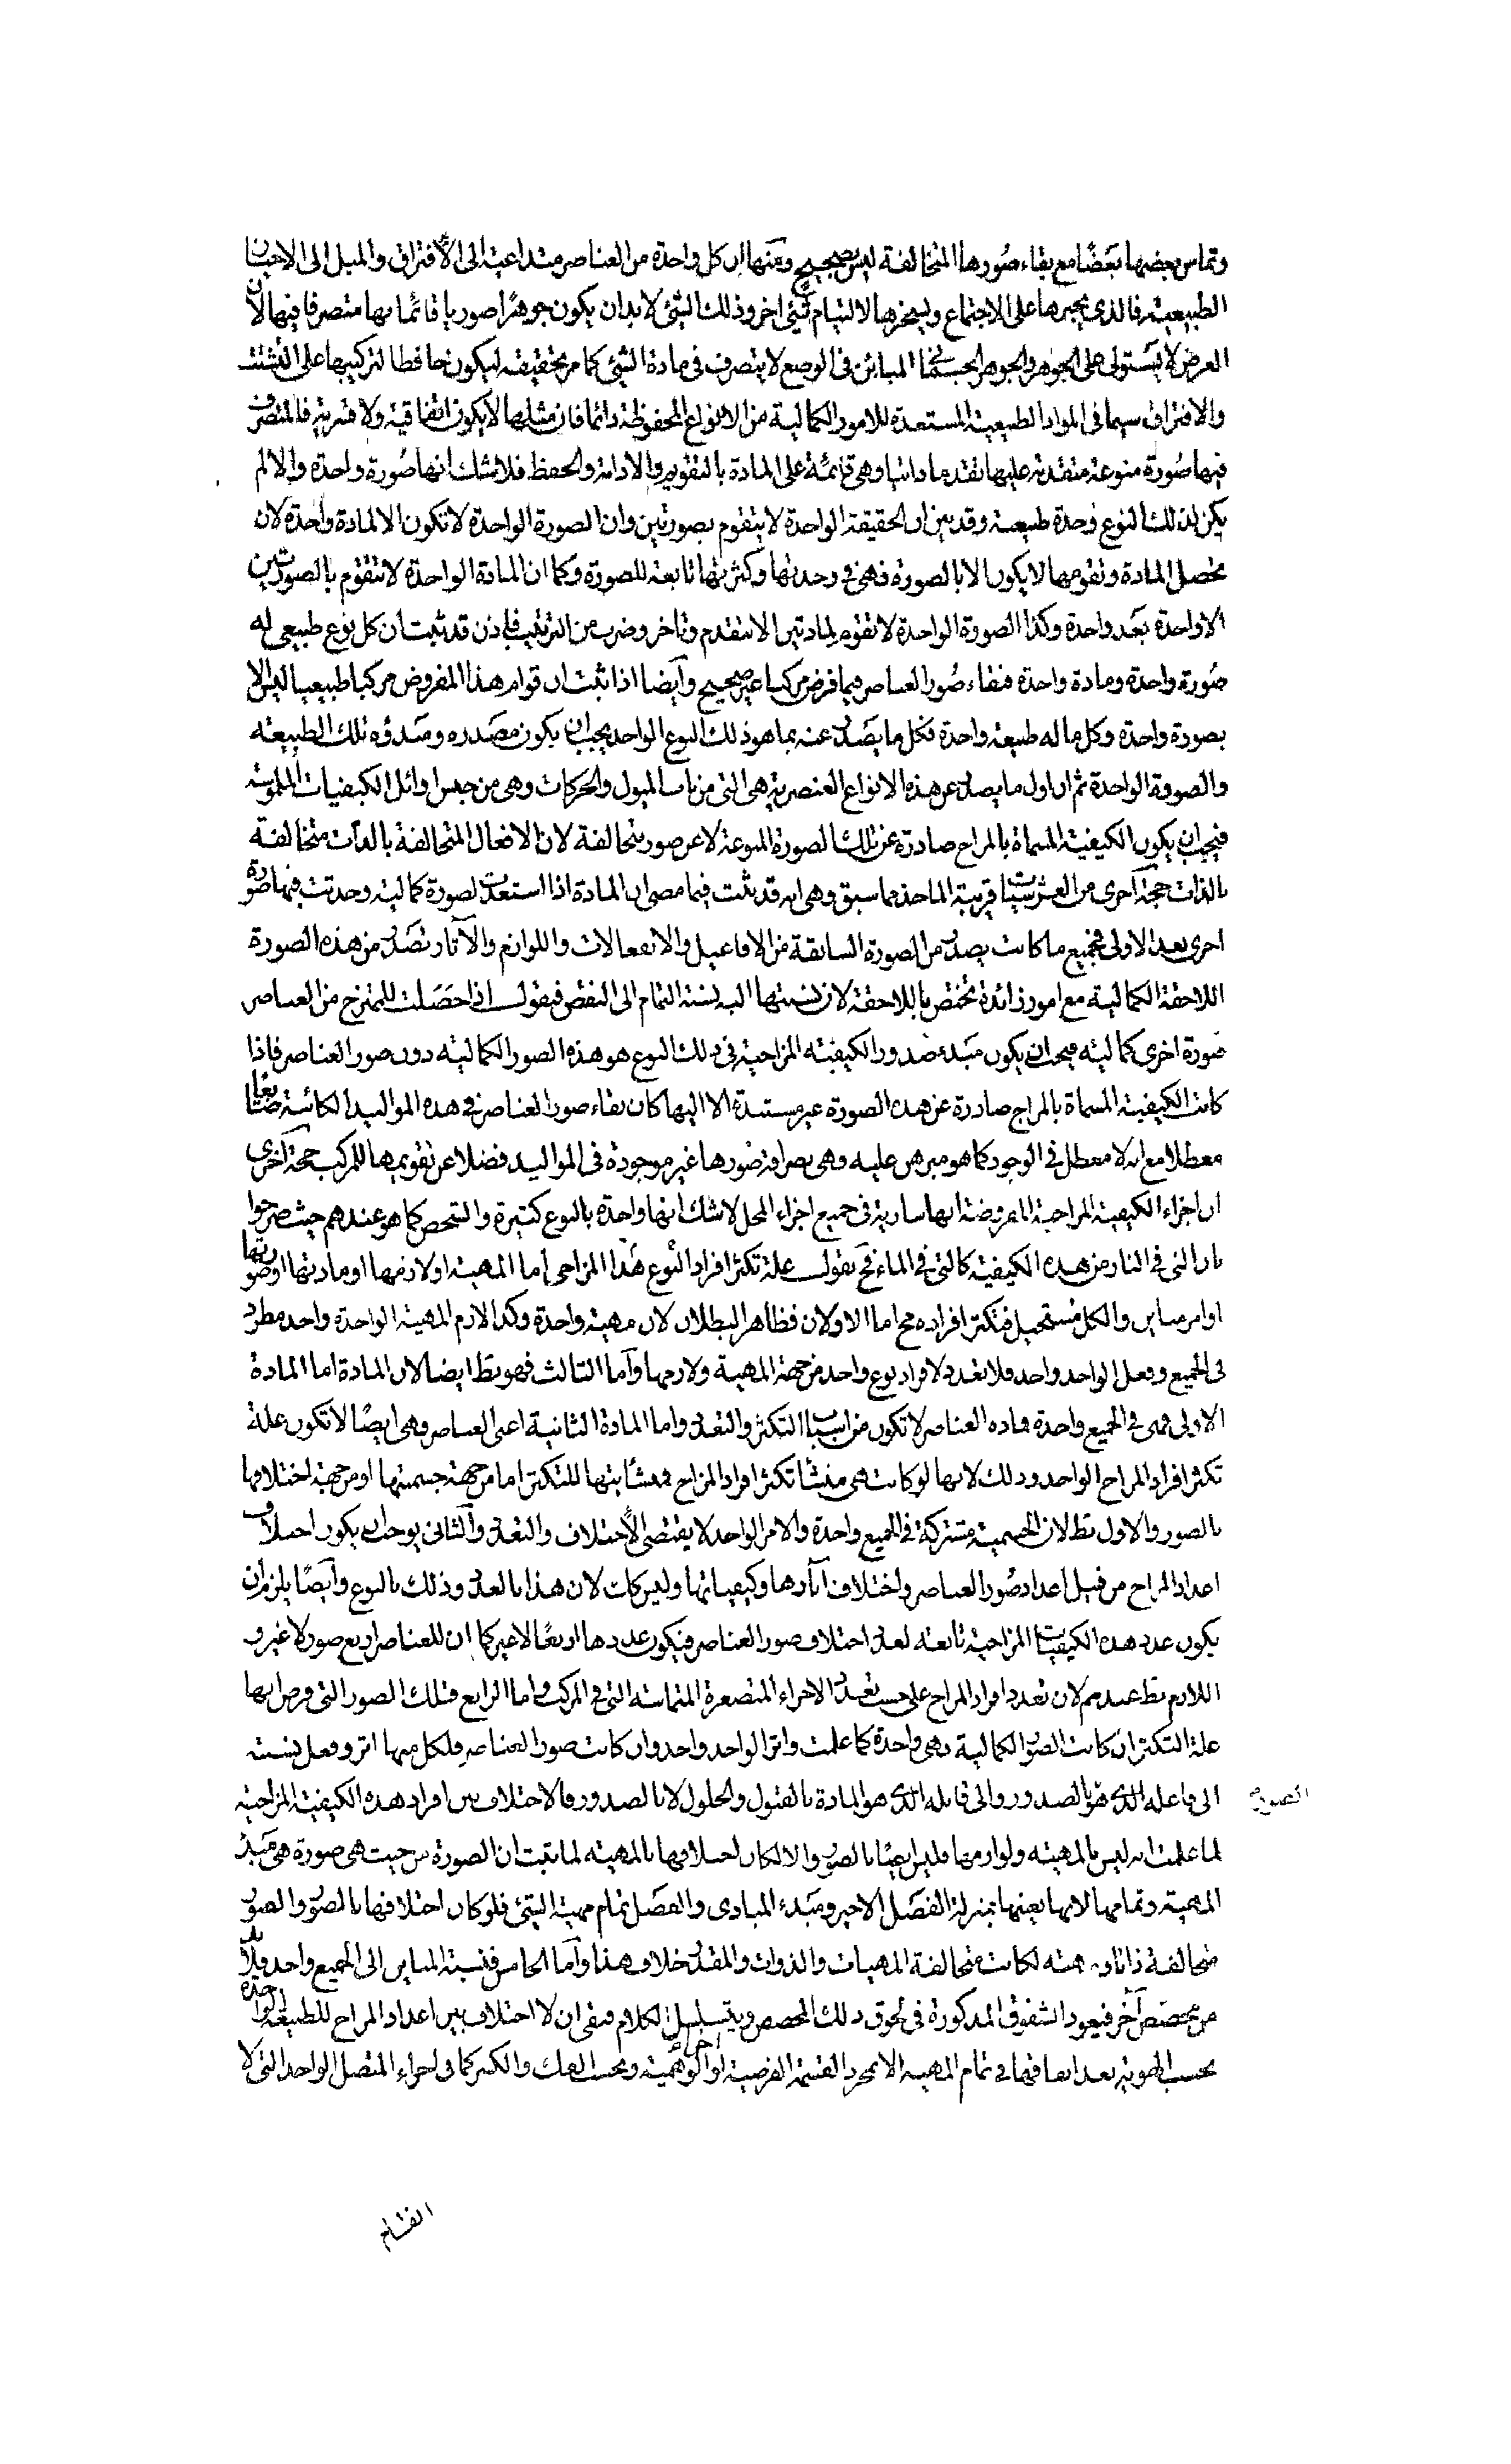 وتماس بعضها بعضا مع بقاء صورها المتخالفة ليس بصحيح ومنها ان كل واحدة من العناصر متداعية الى الافتراق والميل الى الاحيان
الطبيعية فالذى يجبرها على الاجتماع ويسخرها لالتيام شيئ اخر وذلك الشيئ لا بد ان يكون جوهرا صوريا قائما بها متصرفا فيها لان
العرض لا يستولى على الجوهر والجوهر الجسمانى المباين فى الوضع لا يتصرف فى مادة الشيئ كما مر تحقيقه ليكون حافظا لتركيبها على التشتت
والافتراق سيما فى المواد الطبيعية المستعدة للامور الكمالية من الانواع المحفوظة دائما فان مثلها لا يكون اتفاقية ولا قسرية فالمتصرف
فيها صورة منوعة متقدمة عليها تقدما ذاتيا وهى قائمة على المادة بالتقويم والادامة والحفظ فلا شك انها صورة واحدة والا لم
يكن لذلك النوع وحدة طبيعية وقد بين ان الحقيقة الواحدة لا يتقوم بصورتين وان الصورة الواحدة لا تكون الا لمادة واحدة لان
تحصل المادة وتقومها لا يكون الا بالصورة فهى فى وحدتها وكثرتها تابعة للصورة وكما ان المادة الواحدة لا تتقوم بالصورتين
الا واحدة بعد واحدة وكذا الصورة الواحدة لا تقوم لمادتين الا بتقدم وتاخر وضرب من الترتيب فاذن قد ثبت ان كل نوع طبيعى له
صورة واحدة ومادة واحدة فبقاء صور العناصر فيما فرض مركبا غير صحيح وايضا اذا ثبت ان قوام هذا المفروض مركبا طبيعيا ليس الا
بصورة واحدة وكل ما له طبيعة واحدة فكل ما يصدر عنه بما هو ذلك النوع الواحد يجب ان يكون مصدره ومبدؤه تلك الطبيعة
والصورة الواحدة ثم ان اول ما يصدر عن هذه الانواع العنصرية هى التى من باب الميول والحركات وهى من جنس اوائل الكيفيات الملموسة
فيجب ان يكون الكيفية المسماة بالمزاج صادرة عن تلك الصورة المنوعة لا عن صور متخالفة لان الافعال المتخالفة بالذات متخالفة
بالذات حجة اخرى من العرشيات قريبة الماخذ مما سبق وهى انه قد ثبت فيما مضى ان المادة اذا استعدت لصورة كمالية وحدثت فيها صورة
اخرى بعد الاولى فجميع ما كانت يصدر من الصورة السابقة من الافاعيل والانفعالات واللوازم والآثار تصدر من هذه الصورة
اللاحقة الكمالية مع امور زائدة تختص باللاحقة لان نسبتها اليه نسبة التمام الى النقص فيقول اذا حصلت للممتزج من العناصر
صورة اخرى كمالية فيجب ان يكون مبدء صدور الكيفية المزاجية فى ذلك النوع هو هذه الصور الكمالية دون صور العناصر فاذا
كانت الكيفية المسماة بالمزاج صادرة عن هذه الصورة غير مستندة الا اليها كان بقاء صور العناصر فى هذه المواليد الكائنة ضائعا
معطلا مع انه لا معطل فى الوجود كما هو مبرهن عليه وهى بصرافة صورها غير موجودة فى المواليد فضلا عن تقويمها للمركب حجة اخرى
ان اجزاء الكيفية المزاجية المفروضة انها سارية فى جميع اجزاء المحل لا شك انها واحدة بالنوع كثيرة والشخص كما هو عندهم حيث صرحوا
بان التى فى النار من هذه الكيفية كالتى فى الماء فح نقول علة تكثر افراد النوع هذا المزاجى اما المهية او لازمها او مادتها او صورتها
او امر مباين والكل مستحيل فتكثر افراده مح اما الاولان فظاهر البطلان لان مهية واحدة وكذا لازم المهية الواحدة واحد مطرد
فى الجميع وفعل الواحد واحد فلا تعدد لافراد نوع واحد من جهة المهية ولازمها واما الثالث فهو بط ايضا لان المادة اما المادة
الاولى فهى فى الجميع واحدة فمادة العناصر لا تكون من اسباب التكثر والتعدد واما المادة الثانية اعنى العناصر وهى ايضا لا تكون علة
تكثر افراد المزاج الواحد وذلك لانها لو كانت هى منشا تكثر افراد المزاج فمنشايتها للتكثر اما من جهة جسميتها او من جهة اختلافها
بالصور والاول بط لان الجسمية مشتركة فى الجميع واحدة والامر الواحد لا يقتضى الاختلاف والتعدد والثانى يوجب ان يكون اختلاف
اعداد المزاج من قبيل اعداد صور العناصر واختلاف آثارها وكيفياتها وليس كك لان هذا بالعدد وذلك بالنوع وايضا يلزم ان
يكون عدد هذه الكيفيات المزاجية تابعة لعدد اختلاف صور العناصر فيكون عددها اربعا لا غير كما ان للعناصر اربع صور لا غير و
اللازم بط عندهم لان تعدد افراد المزاج على حسب تعدد الاجزاء المتصغرة المتماسة التى فى المركب واما الرابع فتلك الصور التى فرض انها
علة التكثر ان كانت الصور الكمالية فهى واحدة كما علمت واثر الواحد واحد وان كانت صور العناصر فلكل منها اثر وفعل نسبته
الى فاعله الذى هو الصدور والى قابله الذى هو المادة بالقبول والحلول لا بالصدور فالاختلاف بين افراد هذه الكيفية المزاجية
الصورة
لما علمت انه ليس بالمهية ولوازمها فليس ايضا بالصور والا لكان اختلافها بالمهية لما ثبت ان الصورة من حيث هى صورة هى مبدء
المهية وتمامها لانها بعينها بمنزلة الفصل الاخير ومبدء المبادى والفصل تمام مهية الشيئ فلو كان اختلافها بالصور والصور
متخالفة ذاتا ومهية لكانت متخالفة المهيات والذوات والمقدر خلاف هذا واما الخامس فنسبة المباين الى الجميع واحد فلا بد
من مخصص آخر فيعود الشقوق المذكورة فى لحوق ذلك المخصص ويتسلسل الكلام فبقى ان لا اختلاف بين اعداد المزاج للطبيعة الواحدة
بحسب الهوية بعد اتفاقها فى تمام المهية الا بمجرد القسمة الفرضية او الوهمية وبحسب الفك والكسر كما فى اجزاء المتصل الواحد التى لا
اجزاء
انقسام